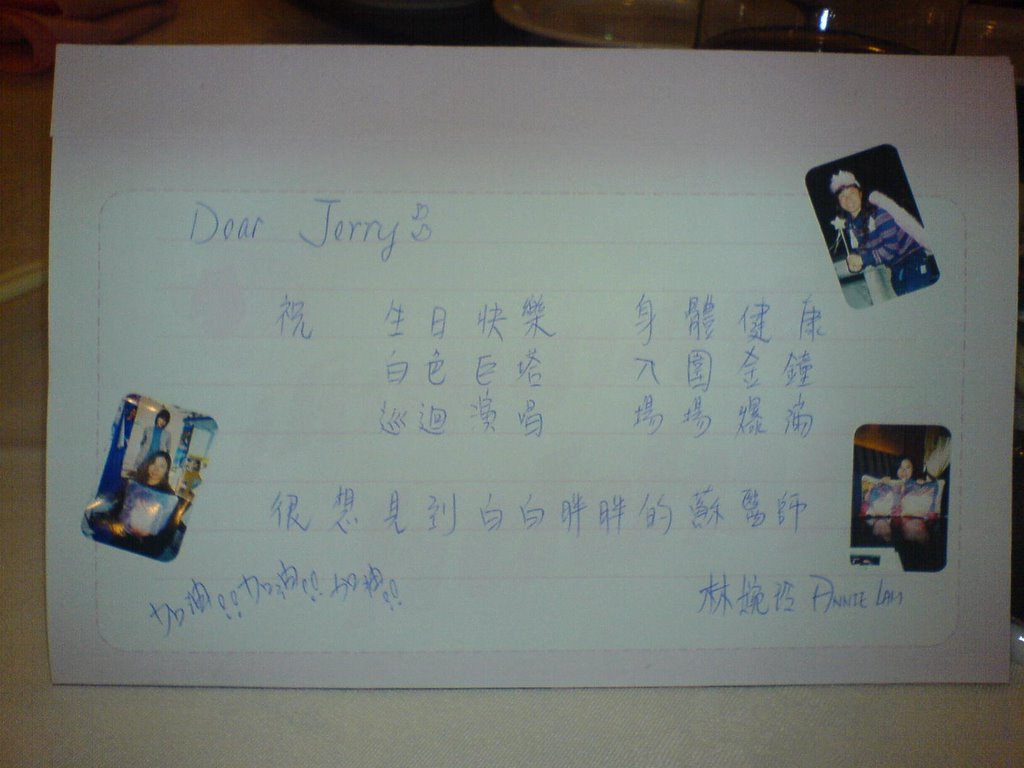 Dear Jerry
祝 生日快樂 身體健康
白色巨塔 入圍金鐘
巡迴演唱 場場爆滿
很想見到白白胖胖的蘇醫師
加油!! 加油!! 加油!!
林婉玲 ANNIE LAM